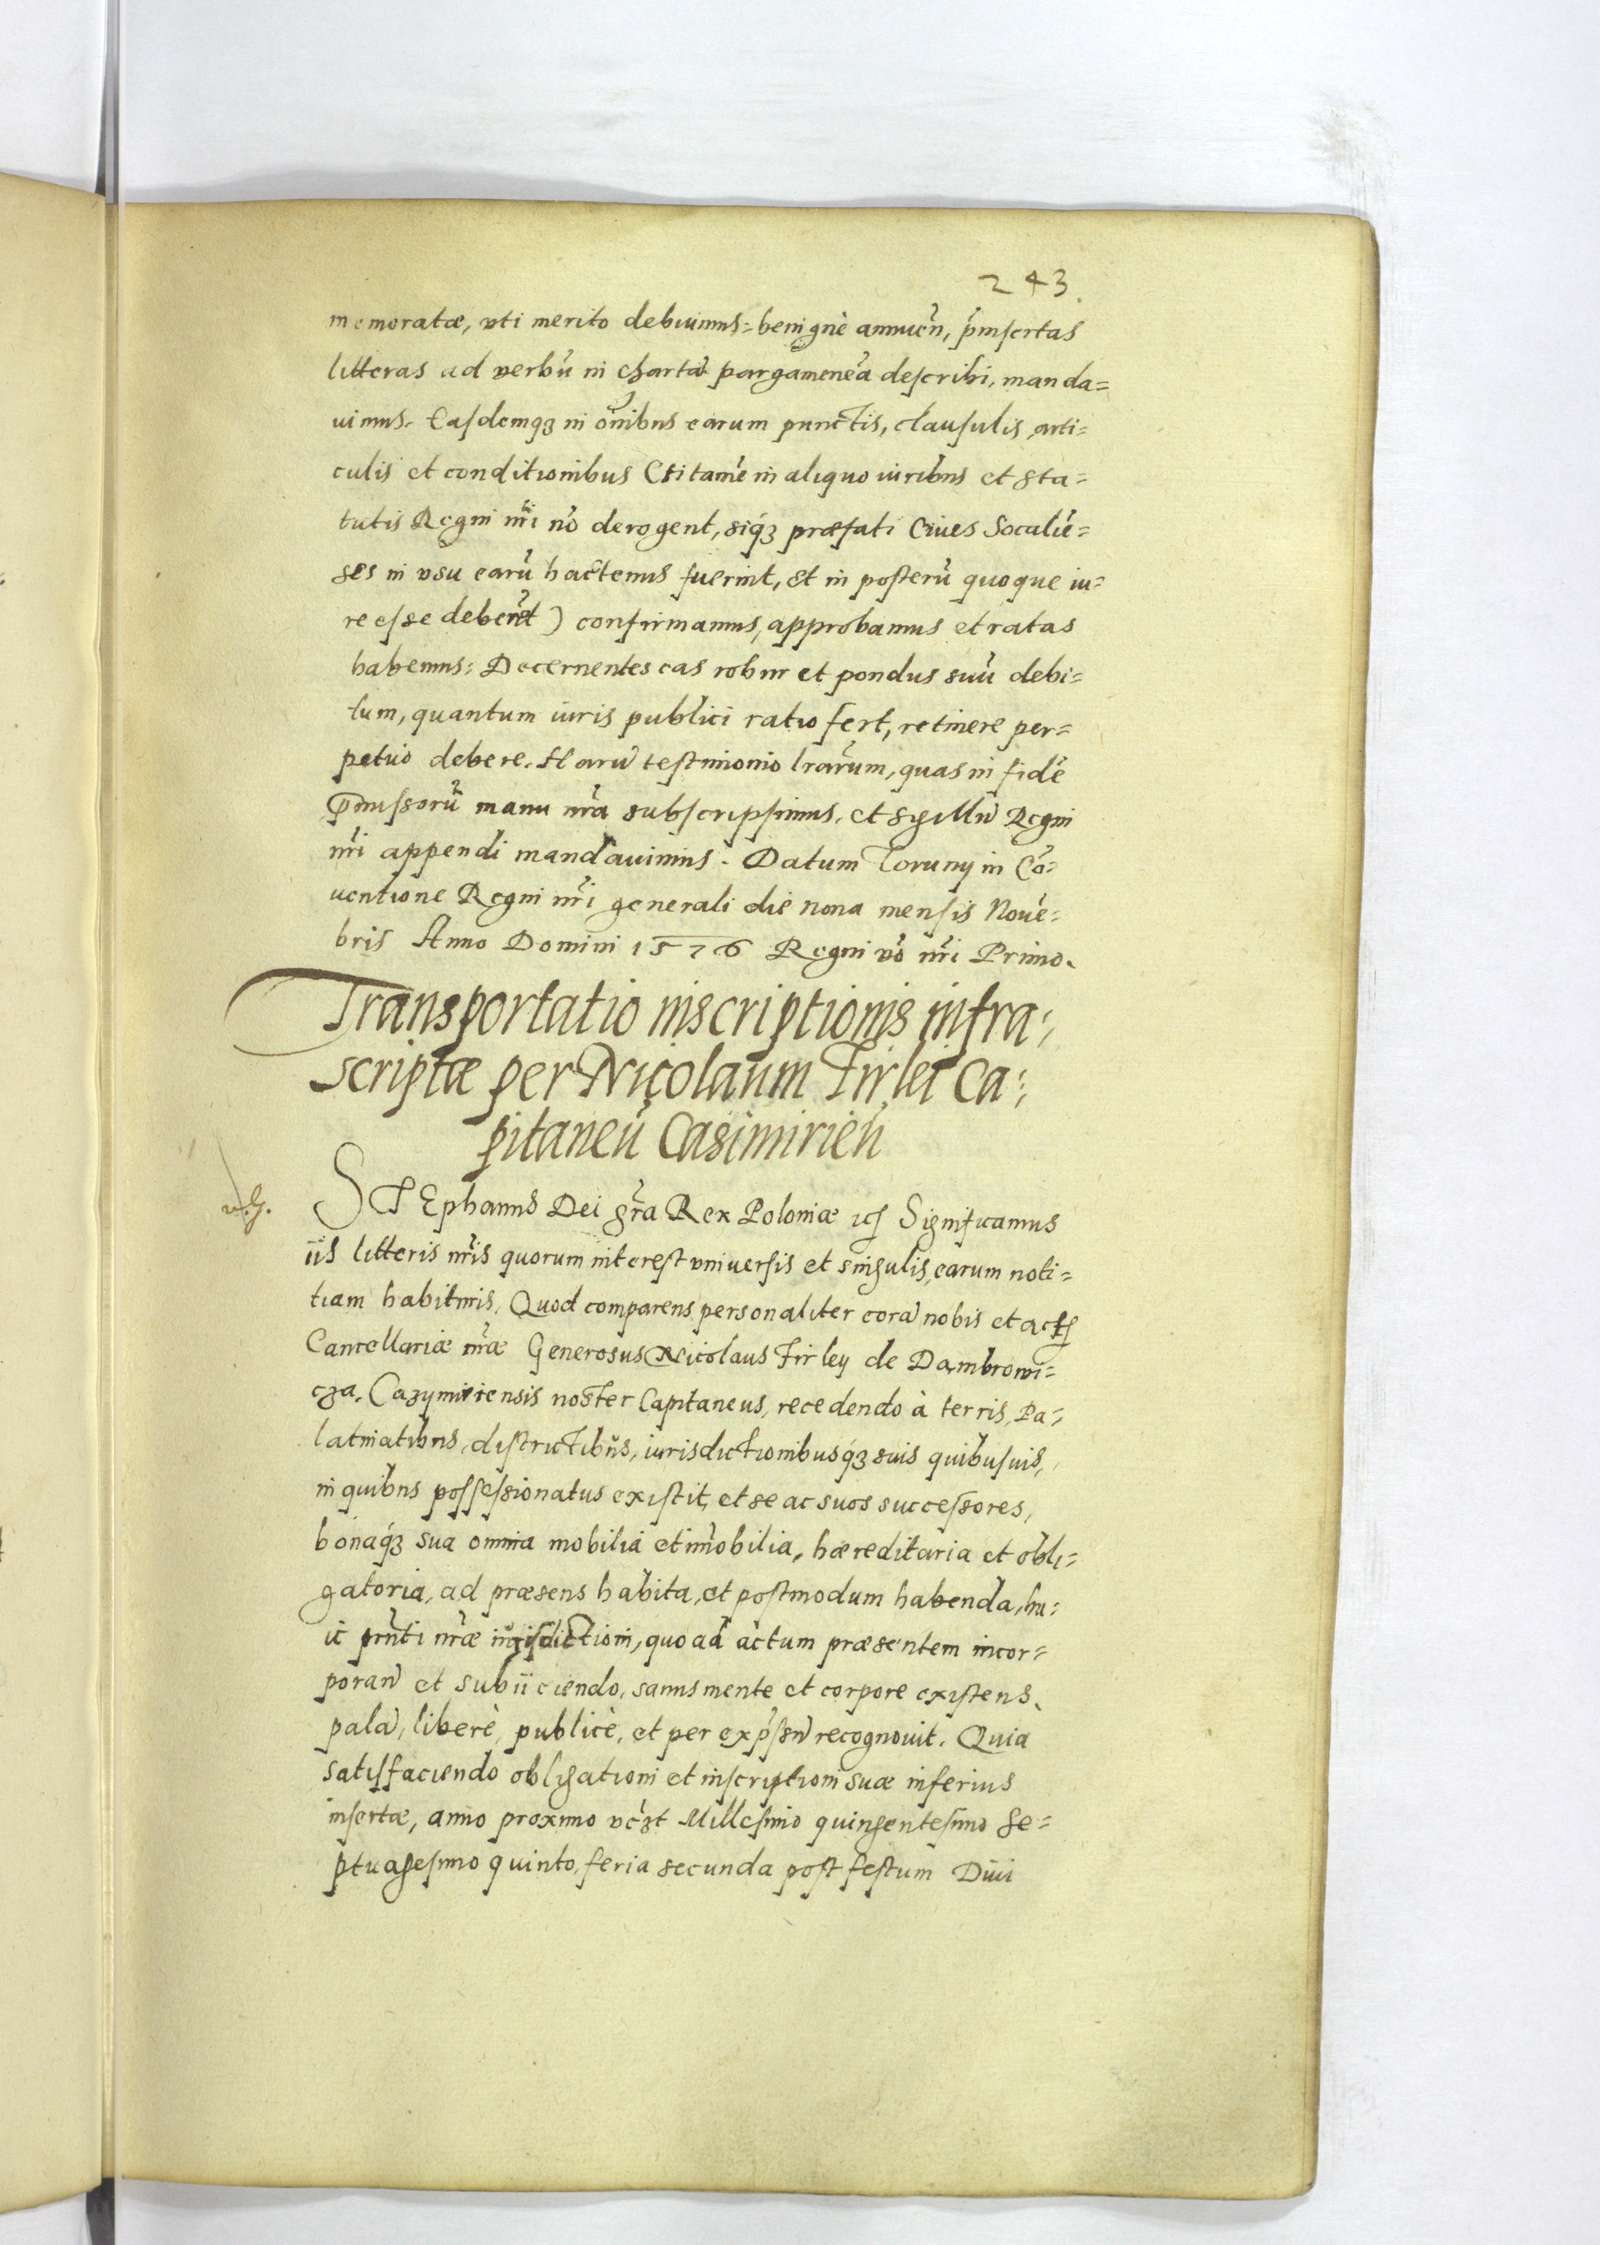 243.
memoratæ, vti merito debuimus: benignè annuen̄, p̄insertas
litteras ad verbū in chartā pargameneā describi, manda=
uimus. Easdemqꝫ in om̄ibus earum punctis, clausulis, arti=
culis et conditionibus (si tamē in aliquo iuribus et sta=
tutis Regni nr̄i nō derogent, siqꝫ præfati Ciues Socaliē=
ses in vsu earū hactenus fuerint, et in posterū quoque iu=
re esse debent) confirmamus, approbamus et ratas
habemus: Decernentes eas robur et pondus suū debi=
tum, quantum iuris publici ratio fert, retinere per=
petuò debere. Harū testimonio lrārum, quas in fidē
p̄missorū manu nr̄a subscripsimus, et sigillū Regni
nr̄i appendi mandauimus. Datum Toruny in Cō=
uentione Regni nr̄i generali die nona mensis Nouē=
bris Anno Domini 1576 Regni vō nr̄i Primo.
Transportatio inscriptionis infra=
scriptæ per Nicolaum Firlei Ca=
pitaneū Casimirien̄
v.g.
STEphanus Dei gr̄a Rex Poloniæ ꝛcꝫ Significamus
iis litteris nr̄is quorum interest vniuersis et singulis, earum noti=
tiam habituris, Quod comparens personaliter corā nobis et actꝫ
Cancellariæ nr̄æ Generosus Nicolaus Firley de Dambrowi=
cza, Cazymiriensis noster Capitaneus, recedendo à terris, Pa=
latinatibus, districtibus, iurisdictionibusqꝫ suis quibusuis,
in quibus possessionatus existit, et se ac suos successores,
bonaqꝫ sua omnia mobilia et im̄obilia, hæreditaria et obli=
gatoria, ad præsens habita, et postmodum habenda, hu=
ic pn̄ti nr̄æ iurisdictioni, quo ad actum præsentem incor=
poran̄ et subiiciendo, sanus mente et corpore existens,
palā, liberè, publicè, et per exp̄ssū recognouit. Quia
satisfaciendo obligationi et inscriptioni suæ inferius
insertæ, anno proximo vēꝫt Millesimo quingentesimo se=
ptuagesimo quinto, feria secunda post festum Diui